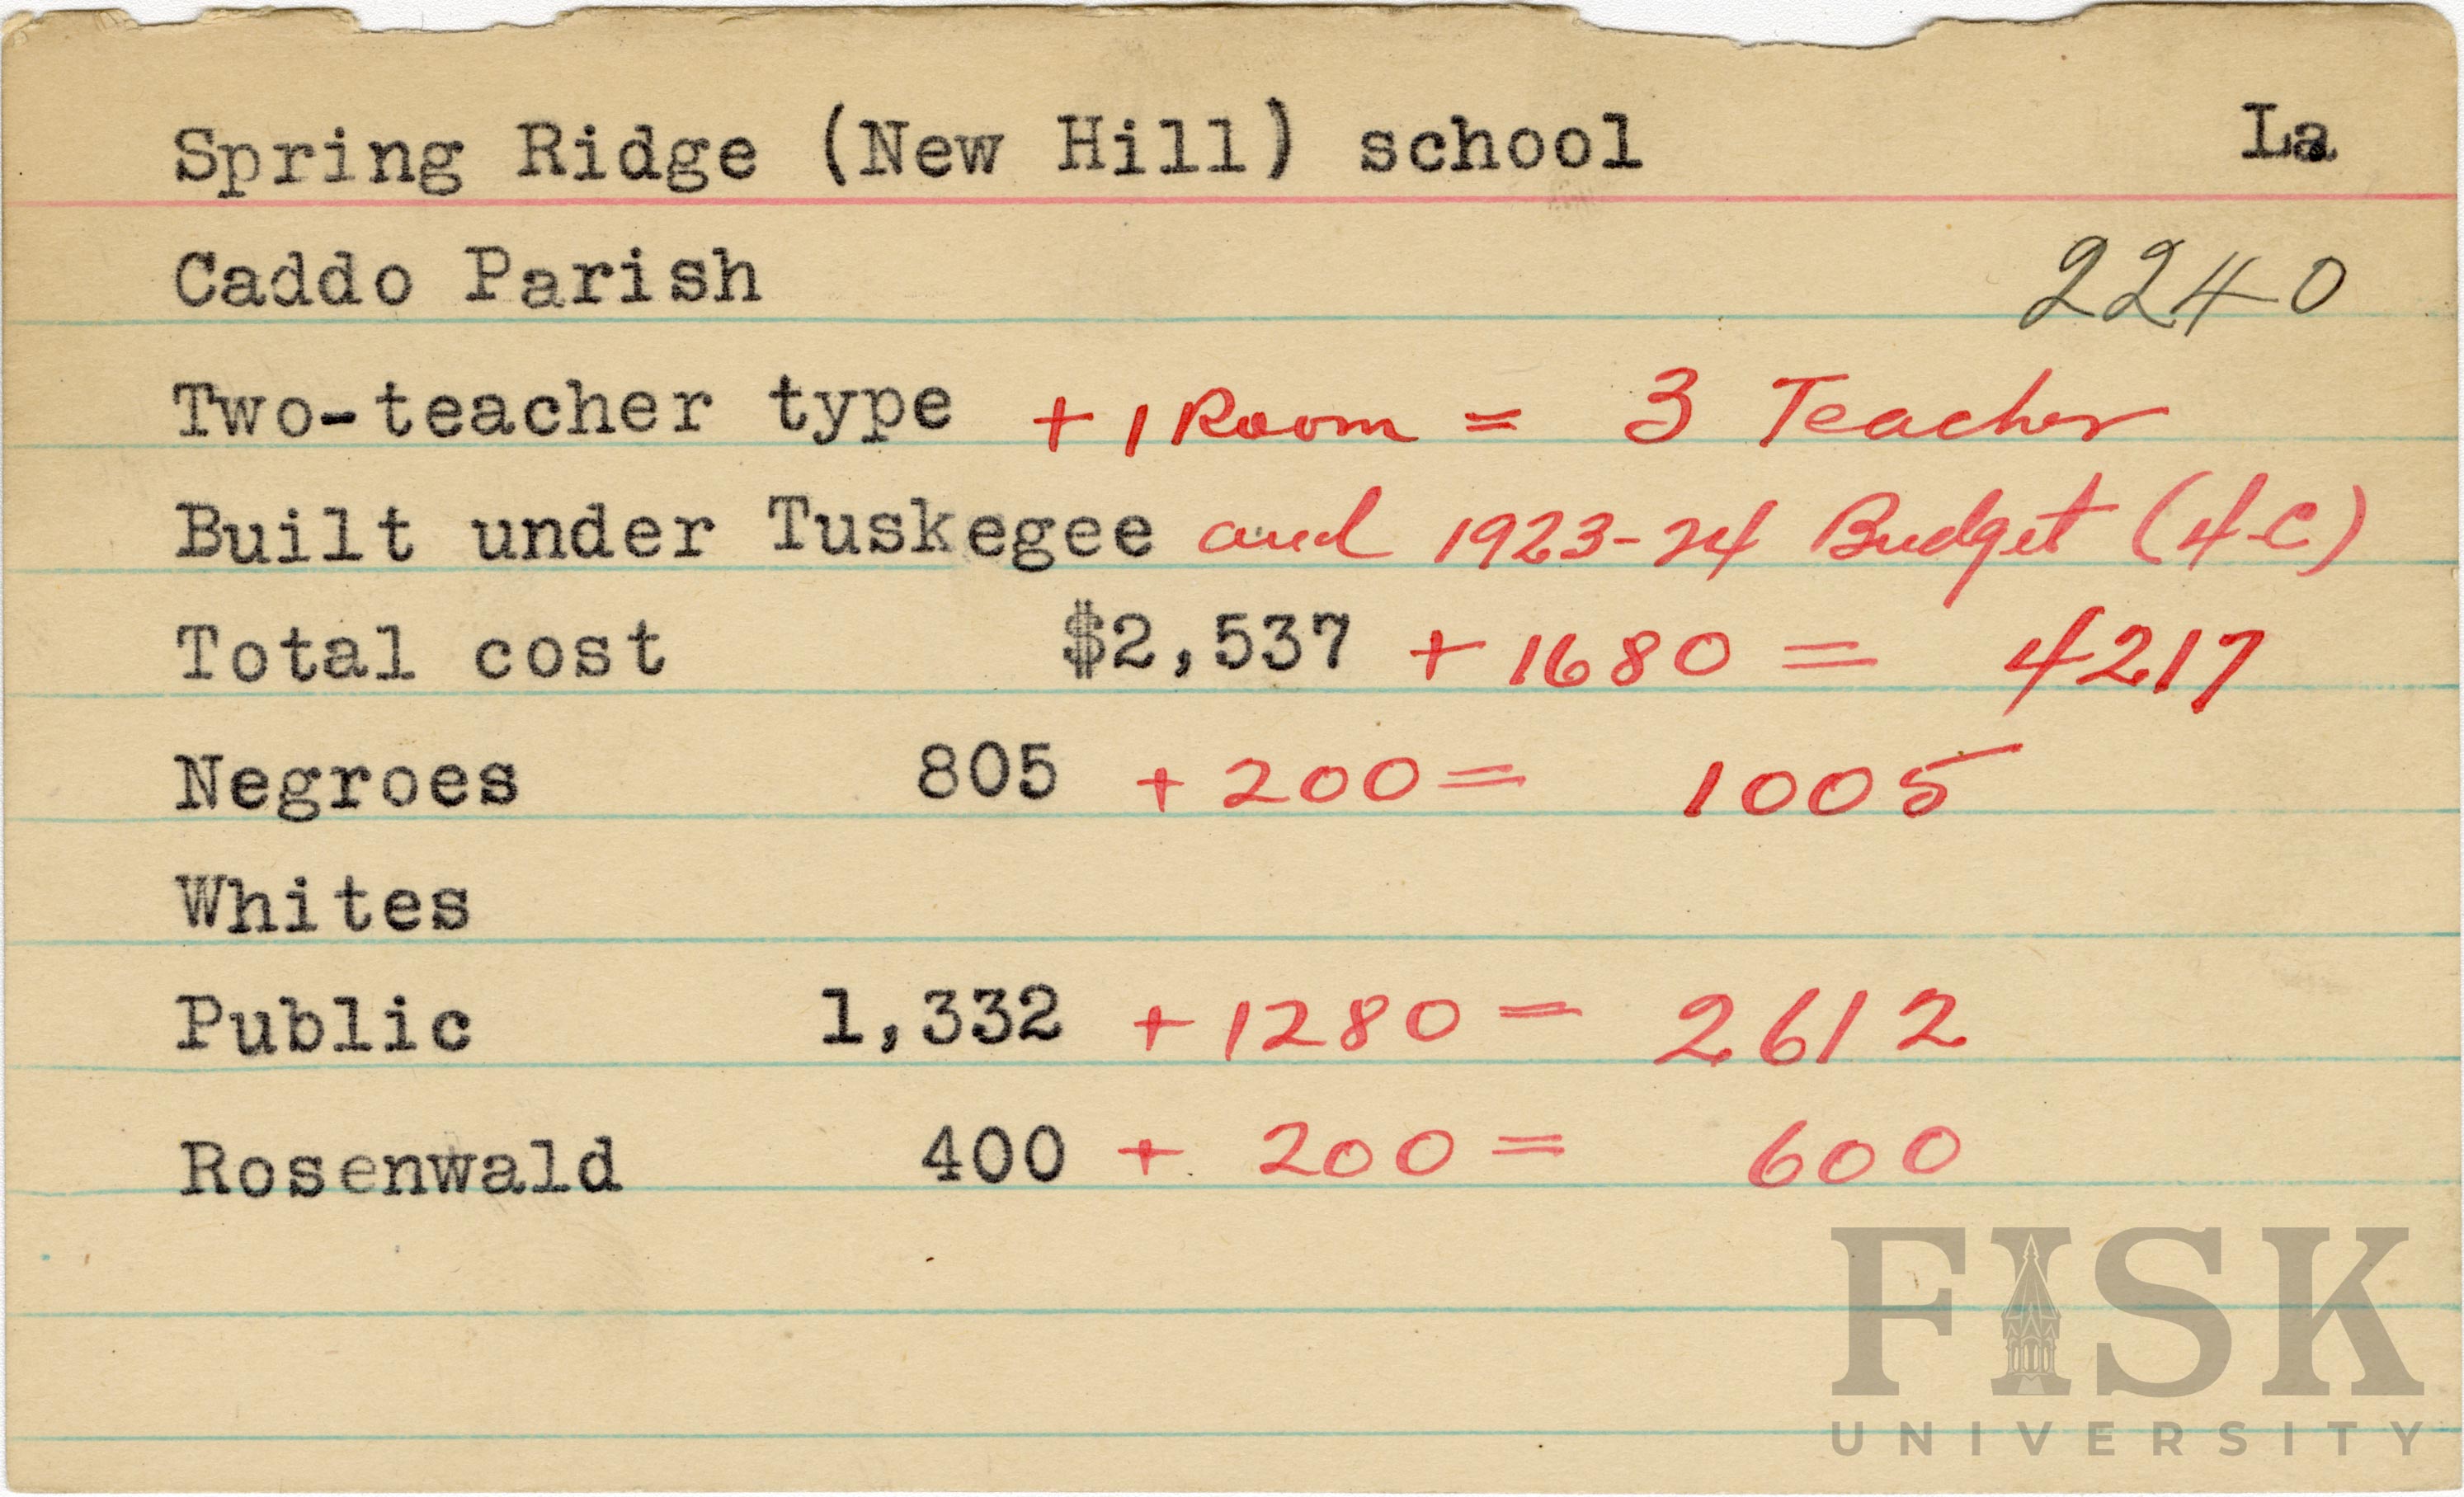 Spring Ridge (New Hill) school La
Caddo Parish 2240
Two-teacher type + 1 Room = 3 Teacher
Built under Tuskegee and 1923-24 Budget (4-C)
Total cost $2,537 + 1680 = 4217
Negroes 805 + 200 = 1005
Whites
Public 1,332 + 1280 = 2612
Rosenwald 400 + 200 = 600
FISK
UNIVERSITY